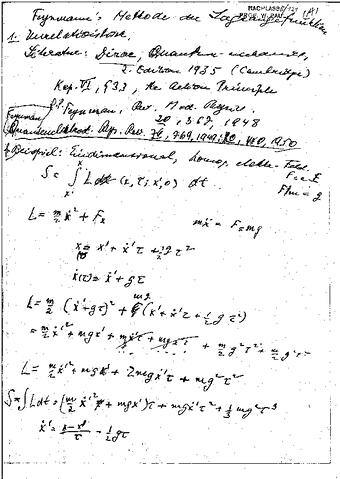 Feynmann's Methode der Lagrangefunktion (A)
1. Unrelativistisch.
Literatur: Dirac, Quantum mechanics,
2. Edition 1935 (Cambridge)
Kap. VI, § 33, the Action Principle
R.P. Feynman, Rev. Mod. Physics.
20, 367, 1948
Feynman 76, 769, 1949; 80, 440, 1950
Beispiel: Eindimensional, homog. elektr. Feld.
F = e E
S = ∫ L dt (x, τ; x', 0) dt. F/m = g
L = m/2 ẋ² + Fx mẍ = F = mg
x = x' + ẋ'τ + ½ g τ²
ẋ(τ) = ẋ' + gτ
L = m/2 (ẋ' + gτ)² + mg (x' + ẋ'τ + ½ g τ²)
= m/2 ẋ'² + mgx' + mẋ'gτ + mgẋ'τ + m/2 g²τ² + m/2 g²τ²
L = m/2 ẋ'² + mgx' + 2mgẋ'τ + mg²τ²
S = ∫ L dt = (m/2 ẋ'² + mgx')τ + mgẋ'τ² + ⅓ mg²τ³
ẋ' = x-x'/τ - ½gτ